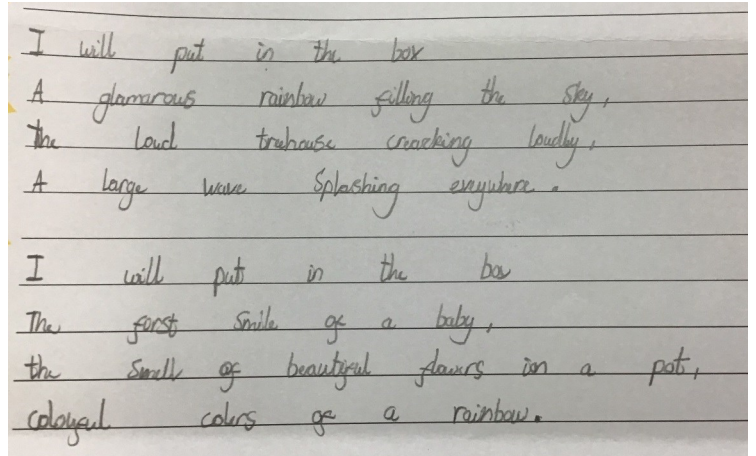 I will put in the box
A glamarous rainbow filling the sky,
The loud trehouse creacking loudly,
A large wave splashing everywhere.
I will put in the box
The forst smile of a baby,
the smell of beautyful flowrs ion a pot,
coloyful colers of a rainbow.